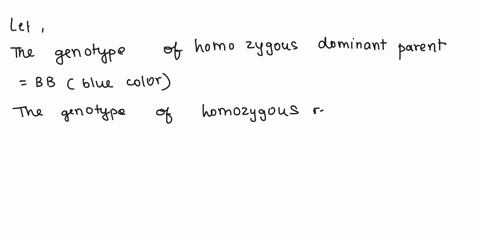 Let,
The genotype of homo zygous dominant parent
= BB (blue color)
The genotype of homozygous r